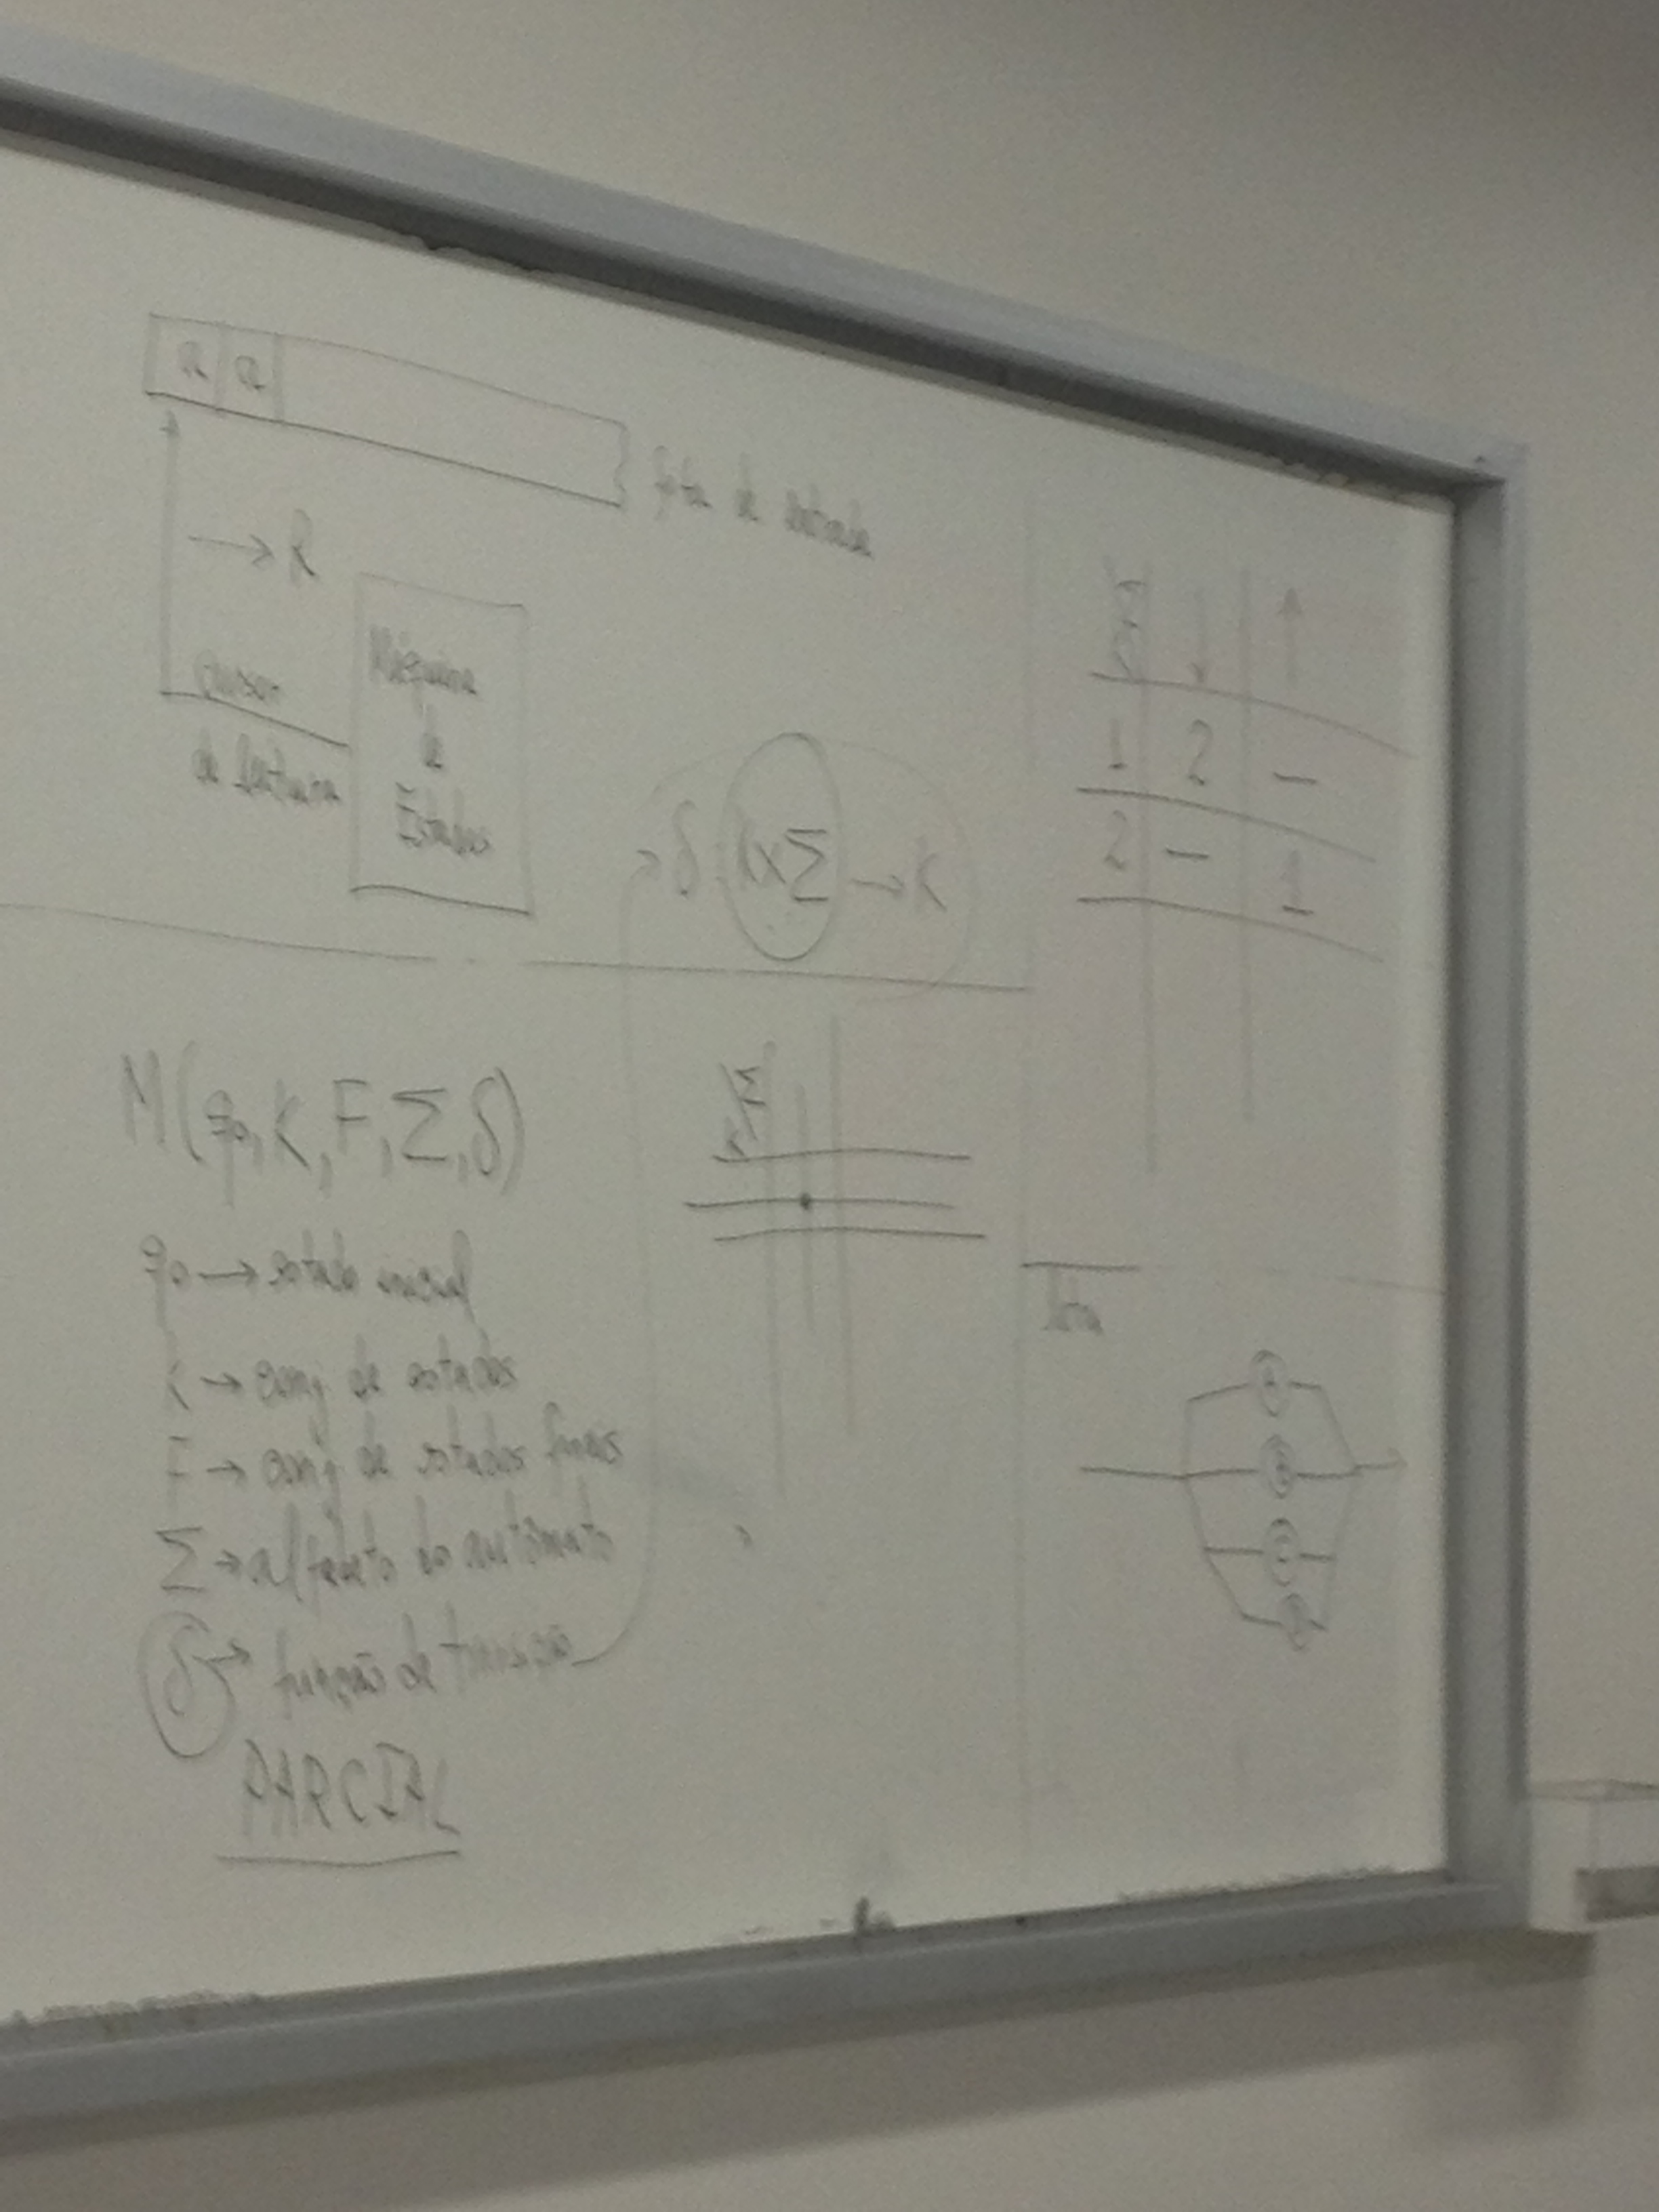 a a
fita de entrada
→ R
cursor
de leitura
Máquina
de
Estados
δ: K×Σ → K
K Σ ↓ ↑
1 2 –
2 – 1
M(q0, K, F, Σ, δ)
q0 → estado inicial
K → conj de estados
F → conj de estados finais
Σ → alfabeto do autômato
δ → função de transição
PARCIAL
K Σ